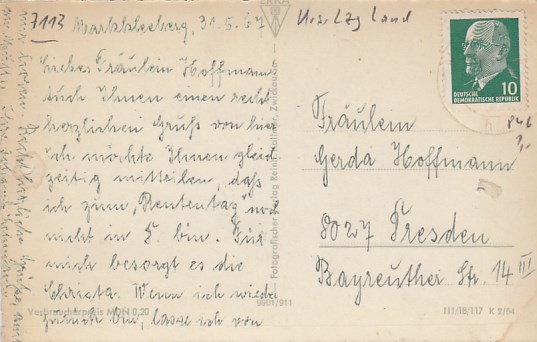 7113 Markkleeberg, 31.5.67
Krs. Lzg Land
Liebes Fräulein Hoffmann
Auch Ihnen einen recht
herzlichen Gruß von hier
Ich möchte Ihnen gleich
zeitig mitteilen, daß
ich zum "Rententag" noch
nicht in D. bin. Für
mich besorgt es die
Christa. Wenn ich wieder
zurück bin, lasse ich von
mir hören. Recht herzliche Grüße
DEUTSCHE
DEMOKRATISCHE REPUBLIK
10
Fräulein
Gerda Hoffmann
8027 Dresden
Bayreuther Str. 14 III
Verbraucherpreis MDN 0,20
9901/911
III/18/117 K 2/64